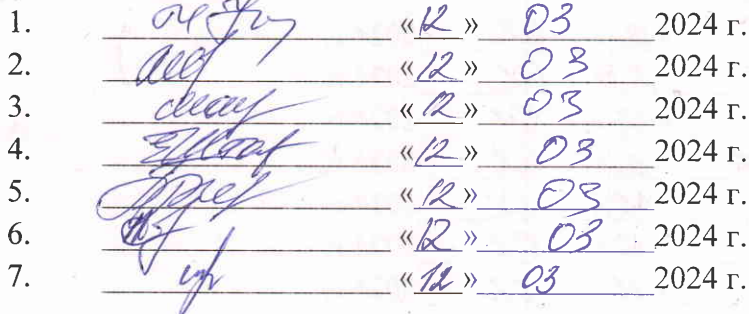 1. «12» 03 2024 г.
2. «12» 03 2024 г.
3. «12» 03 2024 г.
4. «12» 03 2024 г.
5. «12» 03 2024 г.
6. «12» 03 2024 г.
7. «12» 03 2024 г.